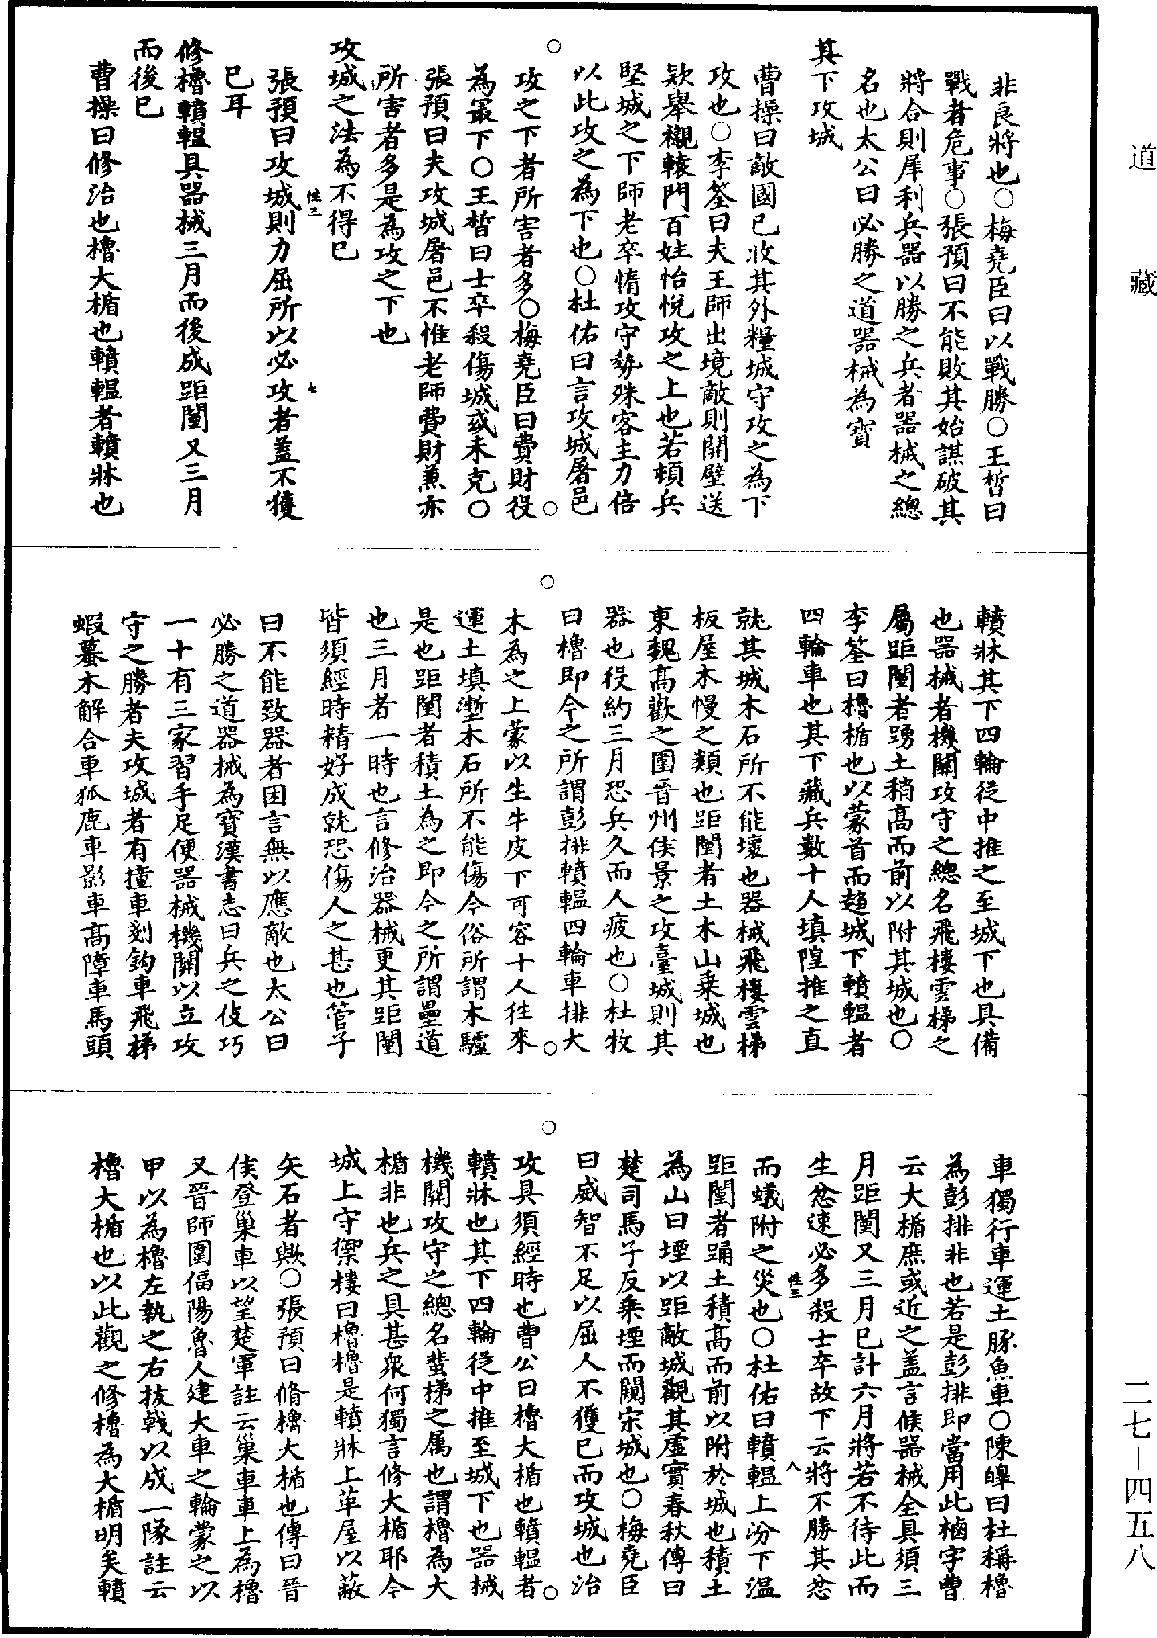 道藏
非良將也○梅堯臣曰以戰勝○王晳曰
戰者危事○張預曰不能敗其始謀破其
將合則犀利兵器以勝之兵者器械之總
名也太公曰必勝之道器械為寳
其下攻城
曹操曰敵國已收其外糧城守攻之為下
攻也○李筌曰夫王師出境敵則開壁送
欵舉櫬轅門百姓怡悅攻之上也若頓兵
堅城之下師老卒惰攻守勢殊客主力倍
以此攻之為下也○杜佑曰言攻城屠邑
攻之下者所害者多○梅堯臣曰費財役
為最下○王晳曰士卒殺傷城或未克○
張預曰夫攻城屠邑不惟老師費財兼亦
所害者多是為攻之下也
攻城之法為不得已
張預曰攻城則力屈所以必攻者蓋不獲
已耳
修櫓轒轀具器械三月而後成距闉又三月
而後已
曹操曰修治也櫓大楯也轒轀者轒牀也
轒牀其下四輪從中推之至城下也具備
也器械者機關攻守之總名飛樓雲梯之
屬距闉者踴土稍高而前以附其城也○
李筌曰櫓楯也以蒙首而趨城下轒轀者
四輪車也其下藏兵數十人填隍推之直
就其城木石所不能壞也器械飛樓雲梯
板屋木幔之類也距闉者土木山乗城也
東魏高歡之圍晉州侯景之攻臺城則其
器也役約三月恐兵久而人疲也○杜牧
曰櫓即今之所謂彭排轒轀四輪車排大
木為之上蒙以生牛皮下可容十人往來
運土填塹木石所不能傷今俗所謂木驢
是也距闉者積土為之即今之所謂壘道
也三月者一時也言修治器械更其距闉
皆須經時精好成就恐傷人之甚也管子
曰不能致器者困言無以應敵也太公曰
必勝之道器械為寳漢書志曰兵之伎巧
一十有三家習手足便器械機關以立攻
守之勝者夫攻城者有撞車剗鈎車飛梯
蝦蟇木解合車狐鹿車影車高障車馬頭
車獨行車運土豚魚車○陳皥曰杜稱櫓
為彭排非也若是彭排即當用此樐字曹
云大楯庶或近之蓋言候器械全具須三
月距闉又三月已計六月將若不待此而
生忿速必多殺士卒故下云將不勝其忿
而蟻附之災也○杜佑曰轒轀上汾下溫
距闉者踊土積高而前以附於城也積土
為山曰堙以距敵城觀其虛實春秋傳曰
楚司馬子反乗堙而闚宋城也○梅堯臣
曰威智不足以屈人不獲已而攻城也治
攻具須經時也曹公曰櫓大楯也轒轀者
轒牀也其下四輪從中推至城下也器械
機關攻守之總名蜚梯之屬也謂櫓為大
楯非也兵之具甚衆何獨言修大楯耶今
城上守禦樓曰櫓櫓是轒牀上革屋以蔽
矢石者歟○張預曰脩櫓大楯也傳曰晉
侯登巢車以望楚軍註云巢車車上為櫓
又晉師圍偪陽魯人建大車之輪蒙之以
甲以為櫓左執之右拔戟以成一隊註云
櫓大楯也以此觀之修櫓為大楯明矣轒
二七—四五八